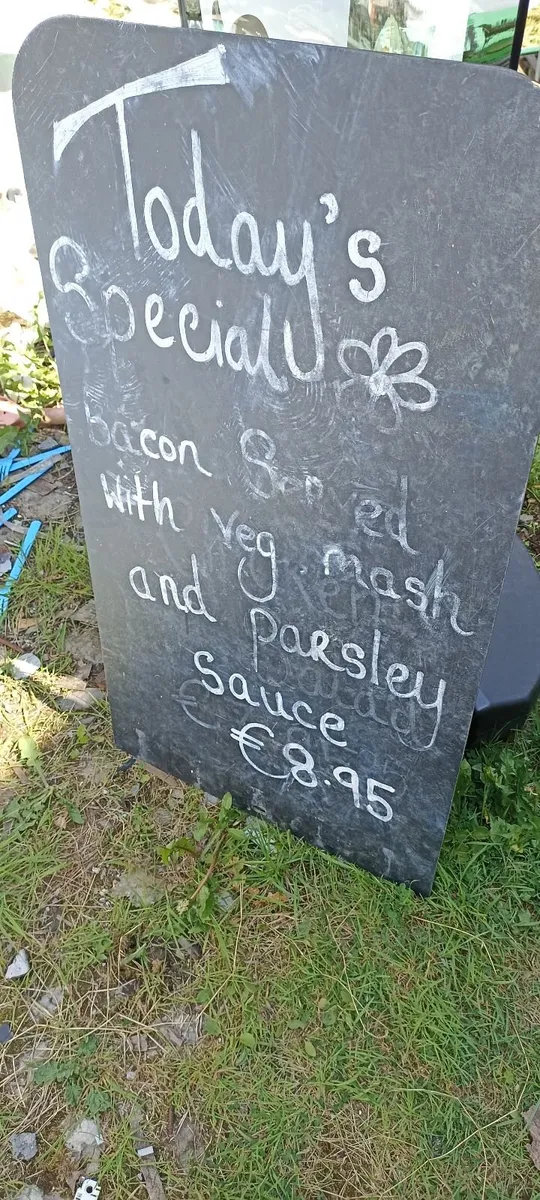 Today's
Special
bacon Served
with veg mash
and parsley
sauce
€8.95